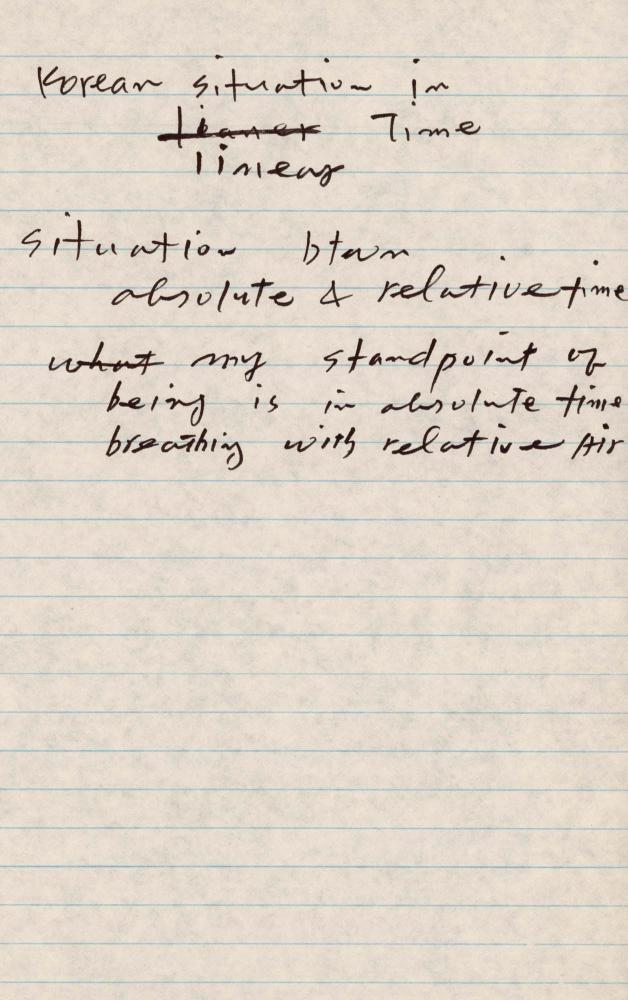 Korean situation in
lianer Time
linear
situation btwn
absolute & relative time
what my standpoint of
being is in absolute time
breathing with relative Air